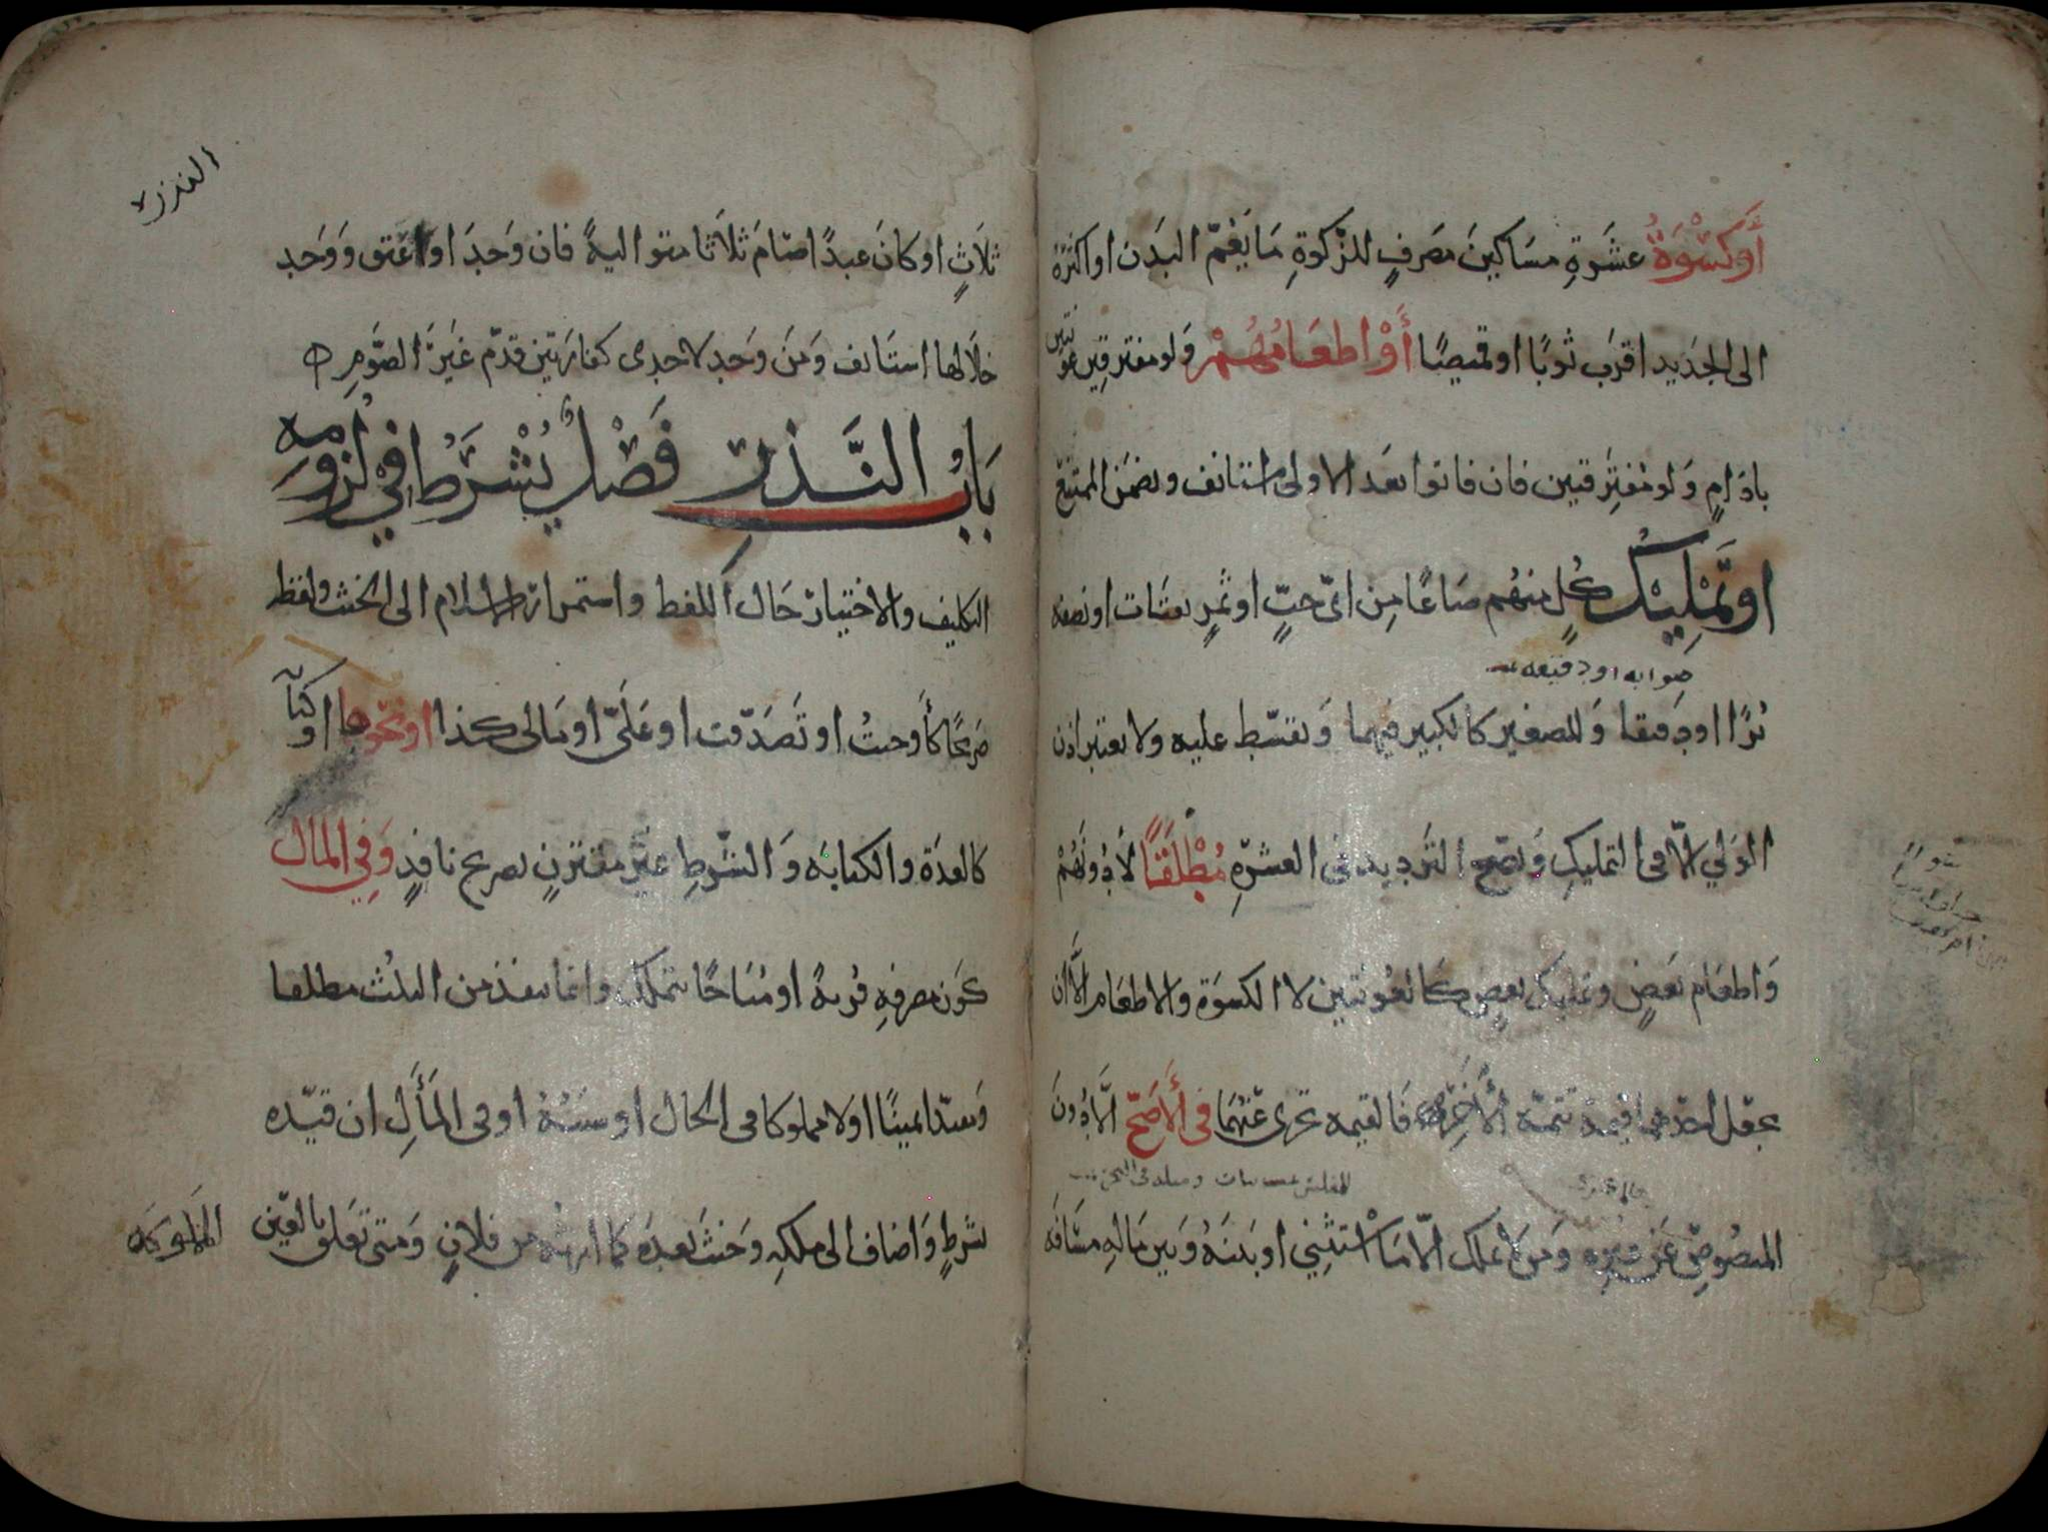 أَوكسْوَةُ عشَرَةِ مسَاكينَ مصَرفٍ للزكوةِ مَا يَعُمّ البَدَن او اكثرَهُ
الى الجَديد اقرَب ثوبًا او قميصًا أَوْ اطعَامُهُمْ وَلو مفترقين عَونَتين
بادَامٍ وَلو مُفترِقين فان فاتوا بعَد الاولى استانف ويضمَن الممتنع
او تَمْلِيْكُ كُلٍ منهُم صَاعًا مِن ايّ حبٍّ او ثمَرٍ يقتَات او نصفه
صوابه او دقيقه
بُرًا او دَقيقا وَللصغير كالكبير فيهما وَيقسّط عليه ولا يعتبر اذن
الوَلي الّا فى التمليكِ وَيصح التَرديد فى العشَرةِ مُطْلَقًا لا دُونَهُمْ
وَاطعَام بَعضٍ وتمليك بعضٍ كَالعَونتين لا الكسوَة والاطعَام الّا ان
يجعَل احدَهما قيمة تتمة الأخرى فَالقيمه تجزى عَنْهُمَا فى الأَصَحّ الّا دُونَ
المنصُوصِ عَن غيرِه وَمن لا يملك الّا مَا اسْتثنِي او بَينَهُ وَبين مَالهِ مسَافَة
الندر
ثلاَثٍ او كانَ عبدًا صَامَ ثلاَثا متواليةً فان وَجدَ او اعتق وَوَجد
خلاَلها استَانف وَمَن وَجد لاحدى كفارَتين قدّم غيَرَ الصَومِ
بَابُ النَّذرِ فَصْلٌ يُشْرَطُ في لزُومِهِ
التكليف والاختيار حَال اللفط واستمرار الاسلام الى الحنث ولفظ
صَريحًا كأَوجبتُ او تَصَدّقت او عَلَيّ او مَالى كذا او نحوها او كنَاية
كالعِدَة والكتابَه وَالشرطِ غيَر مقترنٍ بصريح نافذٍ وَفِي المال
كَون مصرفِهِ قُربةً او مُبَاحًا يتملك وانما ينفذ من الثلُث مطلقا
وَمقيّدا يمينًا اولا مملوكا فى الحال او سبَبُهُ او فى المَأَلِ ان قيّده
بشرطٍ وَاضاف الى ملكهِ وَحنثَ بَعدَهُ كما ارثه من فلانٍ وَمتى تعَلق بالعَين
المملوكَه